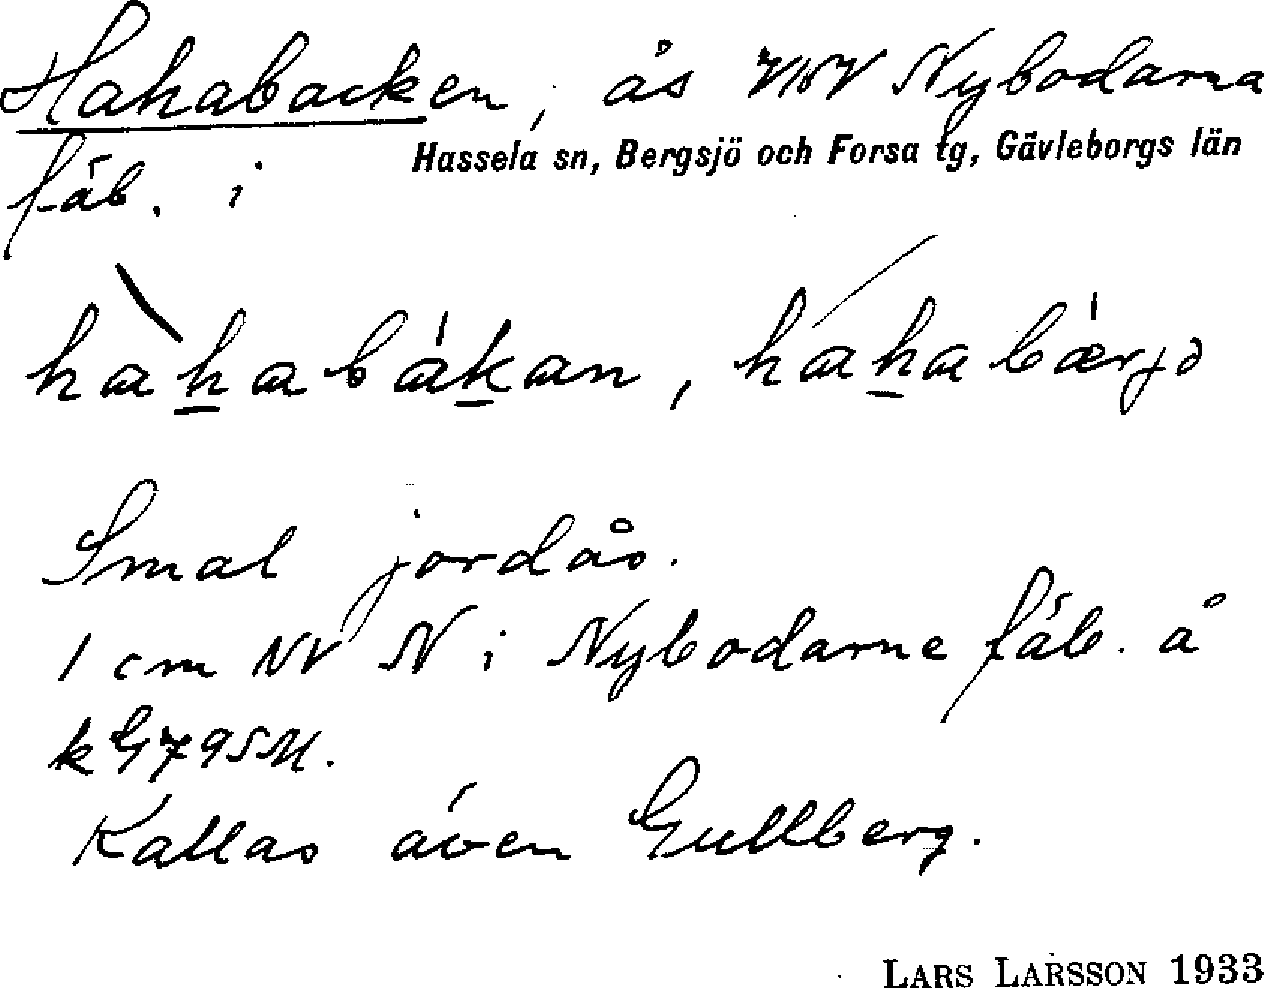 Hahabacken, ås VNV Nybodarna
fäb. i Hassela sn, Bergsjö och Forsa tg, Gävleborgs län
hàhabákan, háhabærjə
Smal jordås.
1 cm NV N i Nybodarne fäb. å
k G 795 M.
Kallas även Gullberg.
LARS LARSSON 1933